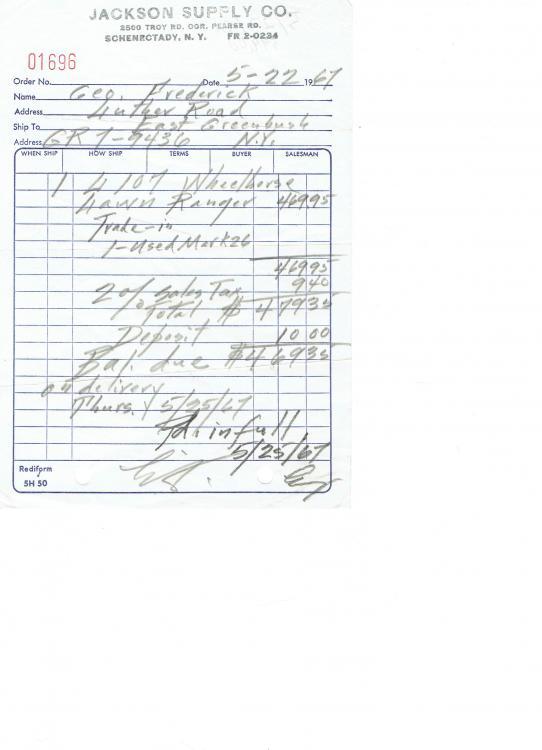 JACKSON SUPPLY CO.
2500 TROY RD. COR. PEARSE RD.
SCHENECTADY, N. Y. FR 2-0234
01696
Order No. Date 5-22 1967
Name Geo. Frederick
Address Luther Road
Ship To East Greenbush
Address GR 7-9436 N.Y.
WHEN SHIP HOW SHIP TERMS BUYER SALESMAN
1 L107 Wheelhorse
Lawn Ranger 469 95
Trade-in
1-Used Mark 26
469 95
2% Sales Tax 9 40
Total $ 479 35
Deposit 10 00
Bal. due $ 469 35
on delivery
Thurs. 5/25/67
Pd. in full
5/25/67
Rediform
5H 50